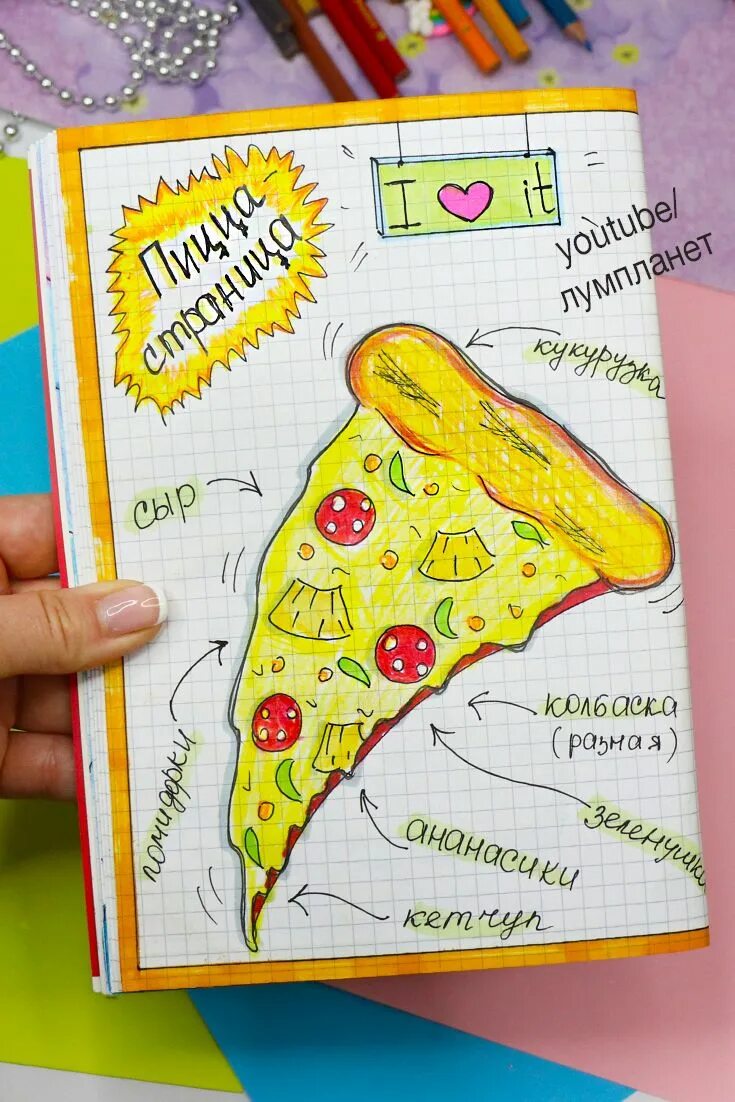 Пицца
страница
I ♥ it
youtube/
лумпланет
кукурузка
сыр
помидорки
колбаска
(разная)
зеленушка
ананасики
кетчуп